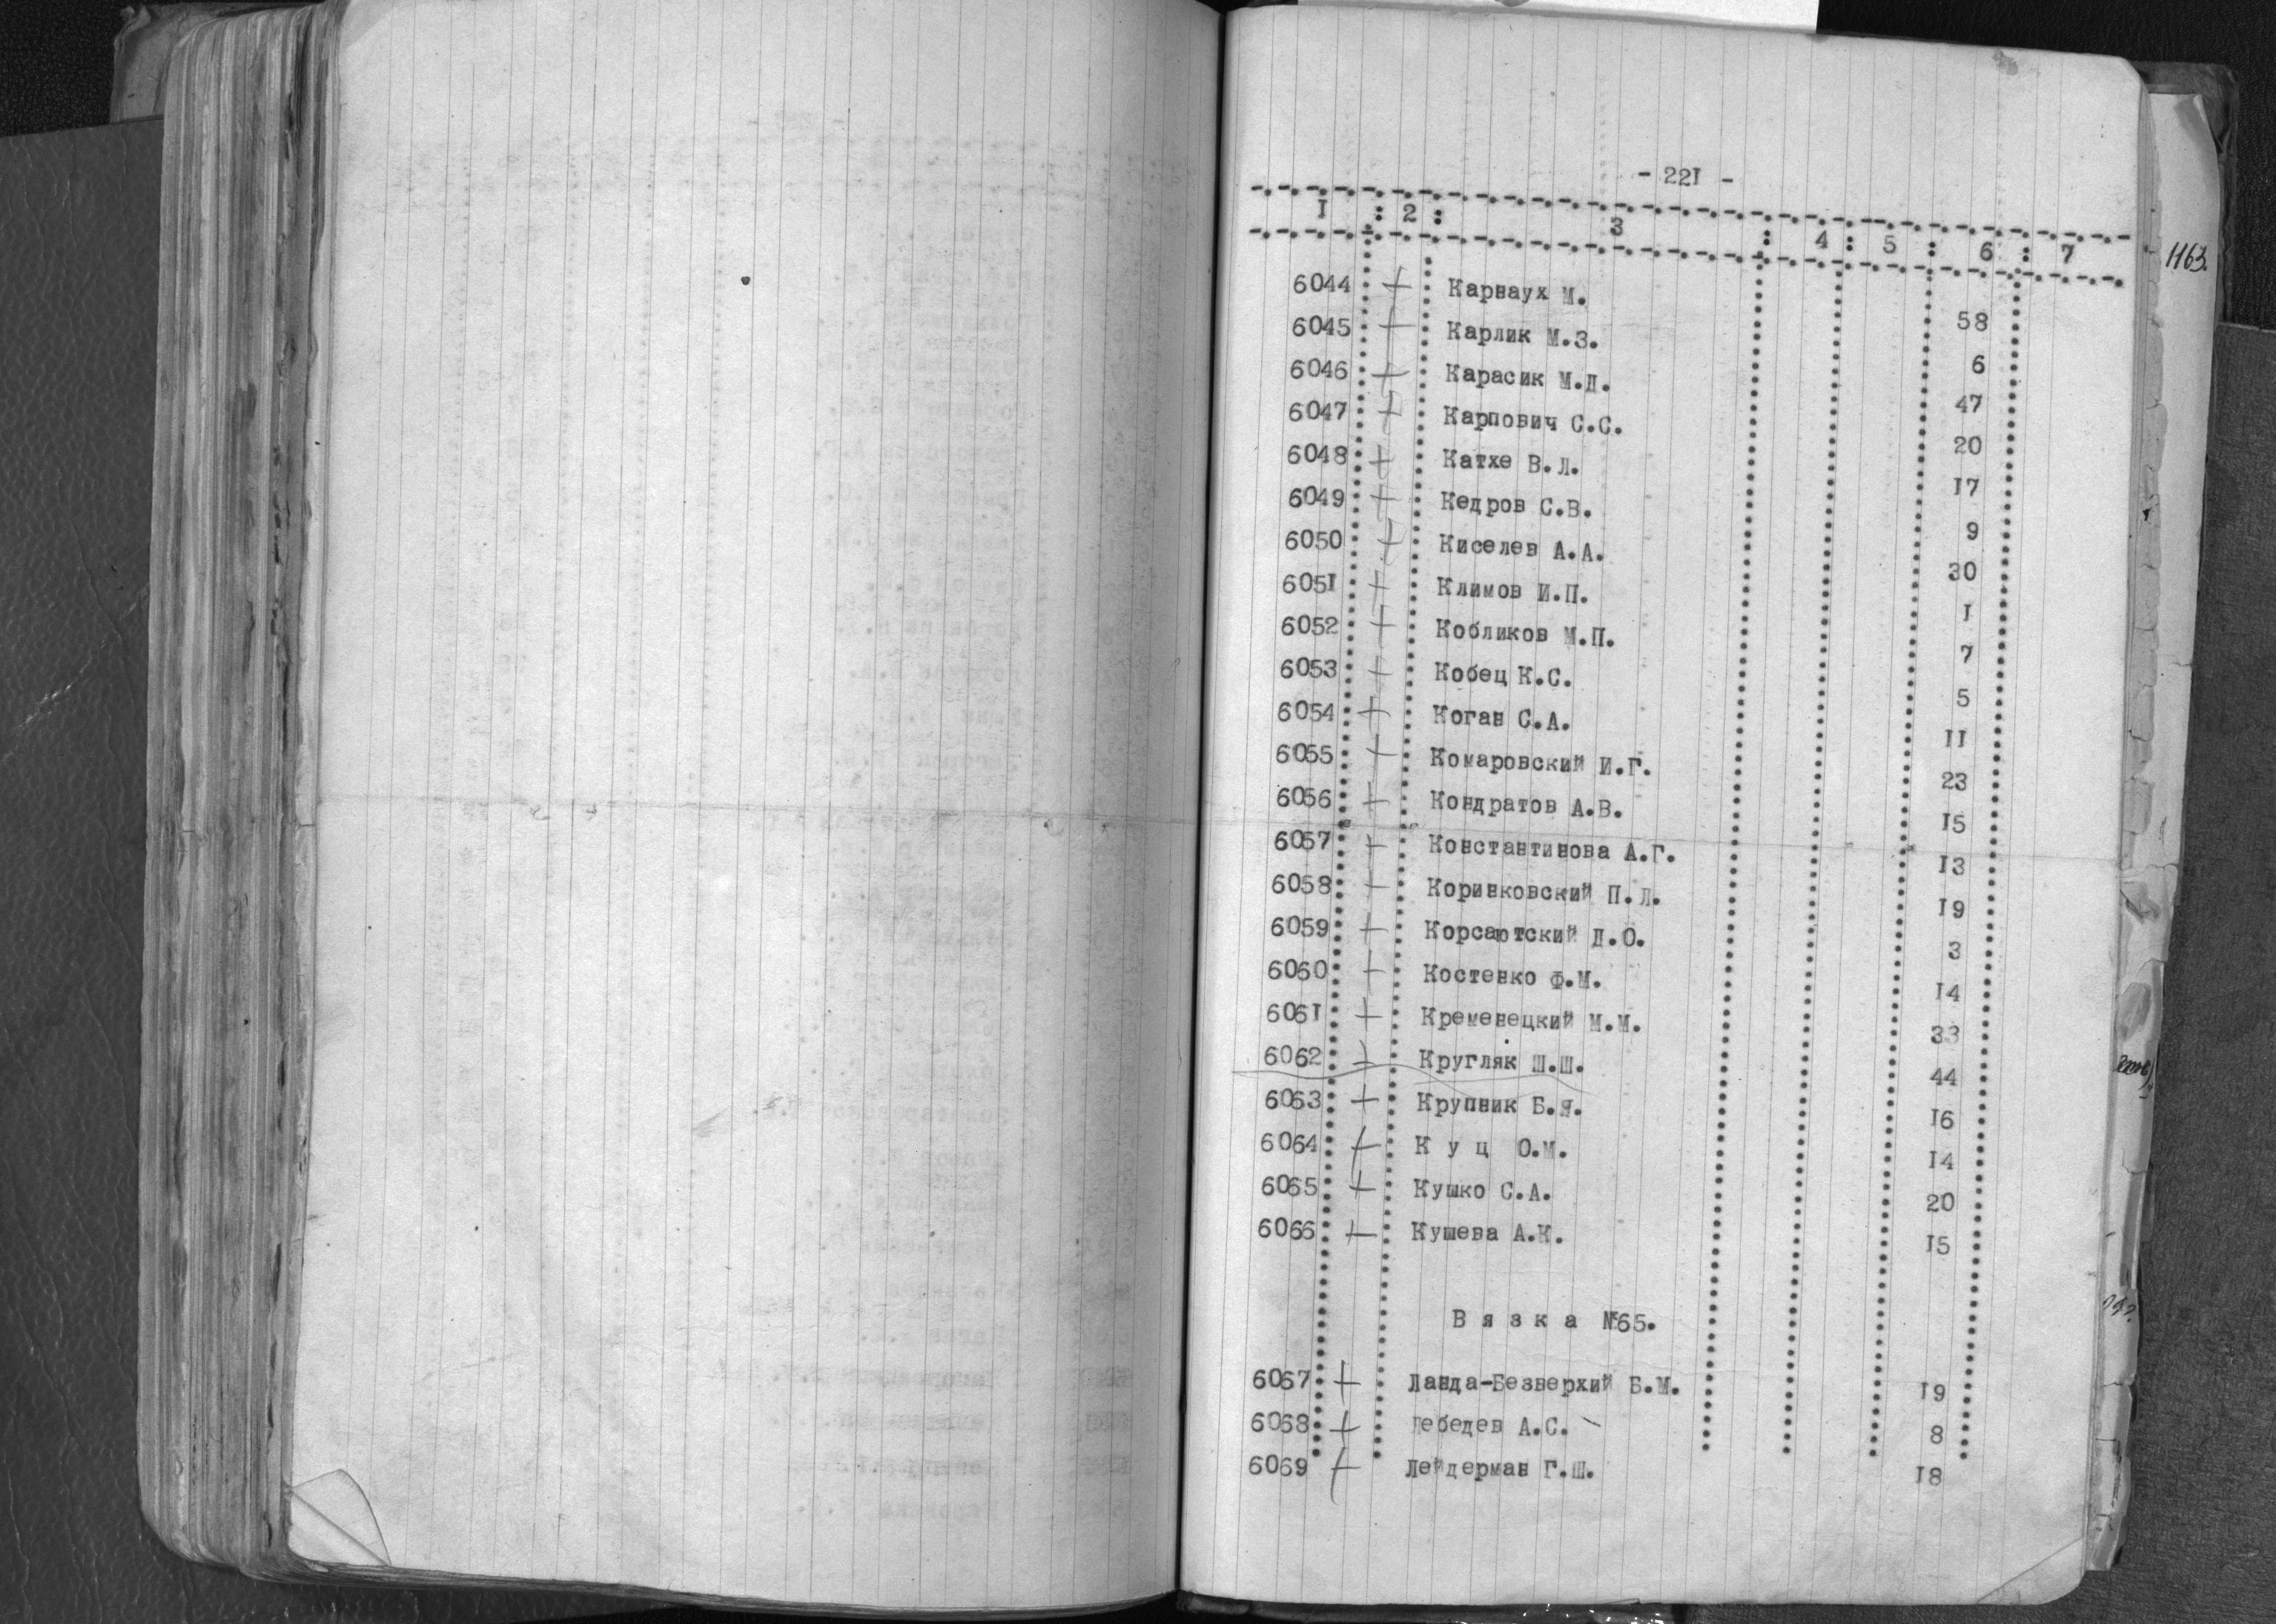 - 22I -
I : 2 : 3 : 4 : 5 : 6 : 7
6044 + Карнаух М. 58
6045 + Карлик М.З. 6
6046 + Карасик М.Д. 47
6047 + Карпович С.С. 20
6048 + Катхе В.Л. I7
6049 + Кедров С.В. 9
6050 + Киселев А.А. 30
605I + Климов И.П. I
6052 + Кобликов М.П. 7
6053 + Кобец К.С. 5
6054 + Коган С.А. II
6055 + Комаровский И.Г. 23
6056 + Кондратов А.В. I5
6057 + Константинова А.Г. I3
6058 + Коринковский П.Л. I9
6059 + Корсаютский Д.О. 3
6060 + Костенко Ф.М. I4
606I + Кременецкий М.М. 33
6062 + Кругляк Ш.Ш. 44
6063 + Крупник Б.Я. I6
6064 + К у ц О.М. I4
6065 + Кушко С.А. 20
6066 + Кушева А.К. I5
В я з к а №65.
6067 + Ланда-Безверхий Б.М. I9
6068 + Лебедев А.С. 8
6069 + Лейдерман Г.Ш. I8
1163.